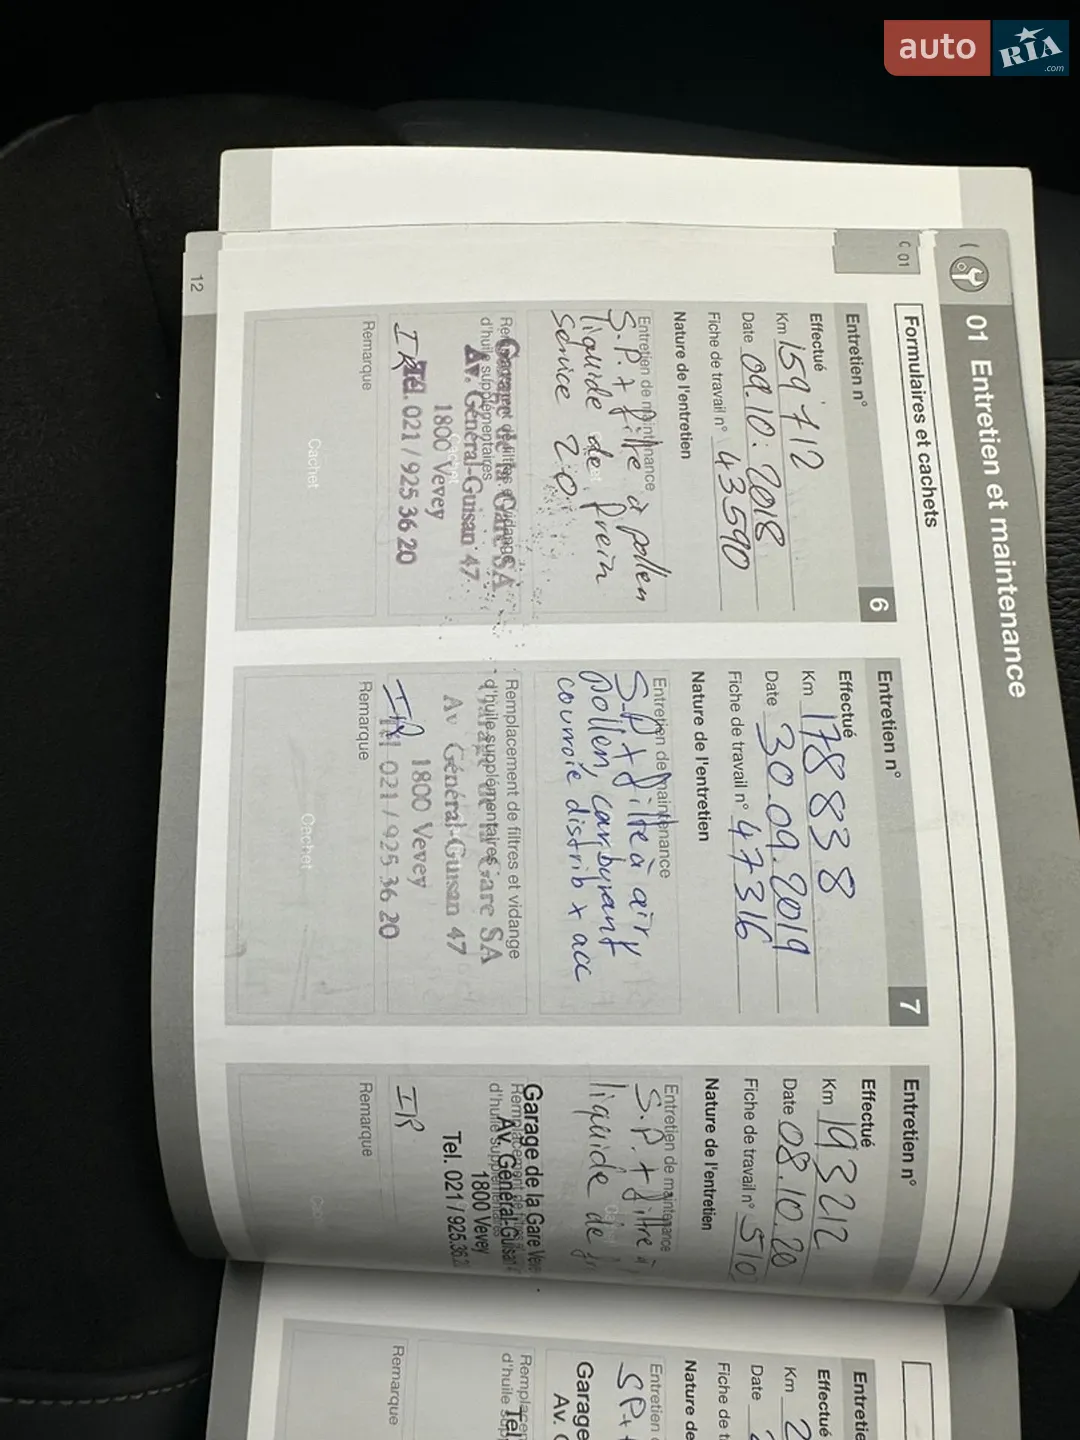 auto
RIA
.com
01 Entretien et maintenance
C 01
Formulaires et cachets
Entretien n° 6
Effectué
Km 159'712
Date 09.10.2018
Fiche de travail n° 43590
Nature de l'entretien
Entretien de maintenance
S.P. + filtre à pollen
liquide de frein
service
Remplacement de filtres et vidange
d'huile supplémentaires
Garage de la Gare SA
Av. Général-Guisan 47
1800 Vevey
Tél. 021 / 925 36 20
Cachet
Remarque
Cachet
Entretien n° 7
Effectué
Km 178838
Date 30.09.2019
Fiche de travail n° 47316
Nature de l'entretien
Entretien de maintenance
S.P. + filtre à air,
pollen, carburant
courroie distrib x acc
Remplacement de filtres et vidange
d'huile supplémentaires
Garage de la Gare SA
Av Général-Guisan 47
1800 Vevey
Tél 021 / 925 36 20
Remarque
Cachet
Entretien n°
Effectué
Km 193212
Date 08.10.20
Fiche de travail n° 510
Nature de l'entretien
Entretien de maintenance
S.P. + filtre à
liquide de
Remplacement de filtres
d'huile supplémentaires
Garage de la Gare
Av. Général-Guisan
1800 Vevey
Tel. 021 / 925.36.2
Remarque
12
Entretie
Effectué
Km 2
Date
Fiche de t
Nature de
Entretien
SP+
Remplacen
d'huile
Garage
Av.
Tel
Remarque